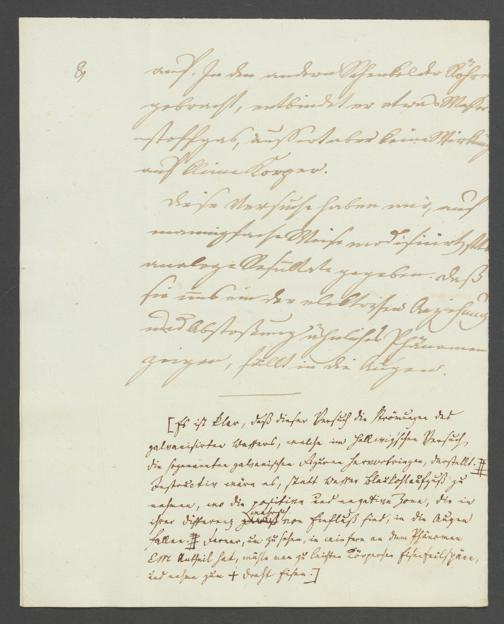 8
auf. In den andern Schenkel der Röhre
gebracht, entbindet er etwas Wasser-
stoffgas, äussert aber keine Wirkung
auf kleine Körper.
Diese Versuche haben mir, auf
mannigfache Weise modifizirt, stets
analoge Resultate gegeben. Daß
sie uns ein der elektrischen Anziehung
und Abstoßung ähnliches Phänomen
zeigen, fällt in die Augen.
[Es ist klar, daß dieser Versuch die Strömungen des
galvanisirten Wassers, welche im Hellwigschen Versuch,
die sogenannten galvanischen Figuren hervorbringen, darstellt.
Instructiv wäre es, statt Wasser Blaukohlaufguß zu
nehmen, wo die positive und negative Zone, die in
ihrer Differenz von Einfluß sind, in die Augen
fallen. Ferner, um zu sehen, in wiefern an dem Phänomen
Antheil hat, müßte man zu leichten Körperchen Eisenfeilspäne,
und neben zum + Draht Eisen.]